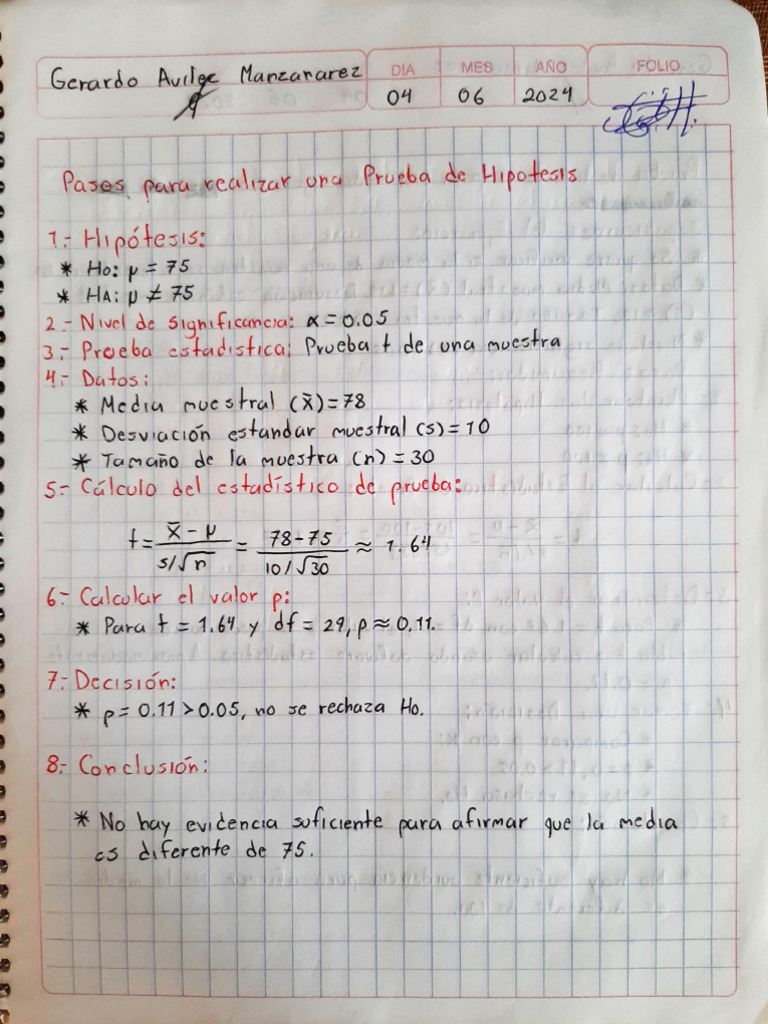 Gerardo Avilez Manzanarez
DIA MES AÑO FOLIO
04 06 2024
Pasos para realizar una Prueba de Hipotesis
1.- Hipótesis:
* Ho: μ = 75
* HA: μ ≠ 75
2.- Nivel de significancia: α = 0.05
3.- Prueba estadistica: Prueba t de una muestra
4.- Datos:
* Media muestral (x̄) = 78
* Desviación estandar muestral (s) = 10
* Tamaño de la muestra (n) = 30
5.- Cálculo del estadístico de prueba:
t = (x̄ - μ) / (s/√n) = (78 - 75) / (10/√30) ≈ 1.64
6.- Calcular el valor p:
* Para t = 1.64 y df = 29, p ≈ 0.11.
7.- Decisión:
* p = 0.11 > 0.05, no se rechaza Ho.
8.- Conclusión:
* No hay evidencia suficiente para afirmar que la media
es diferente de 75.